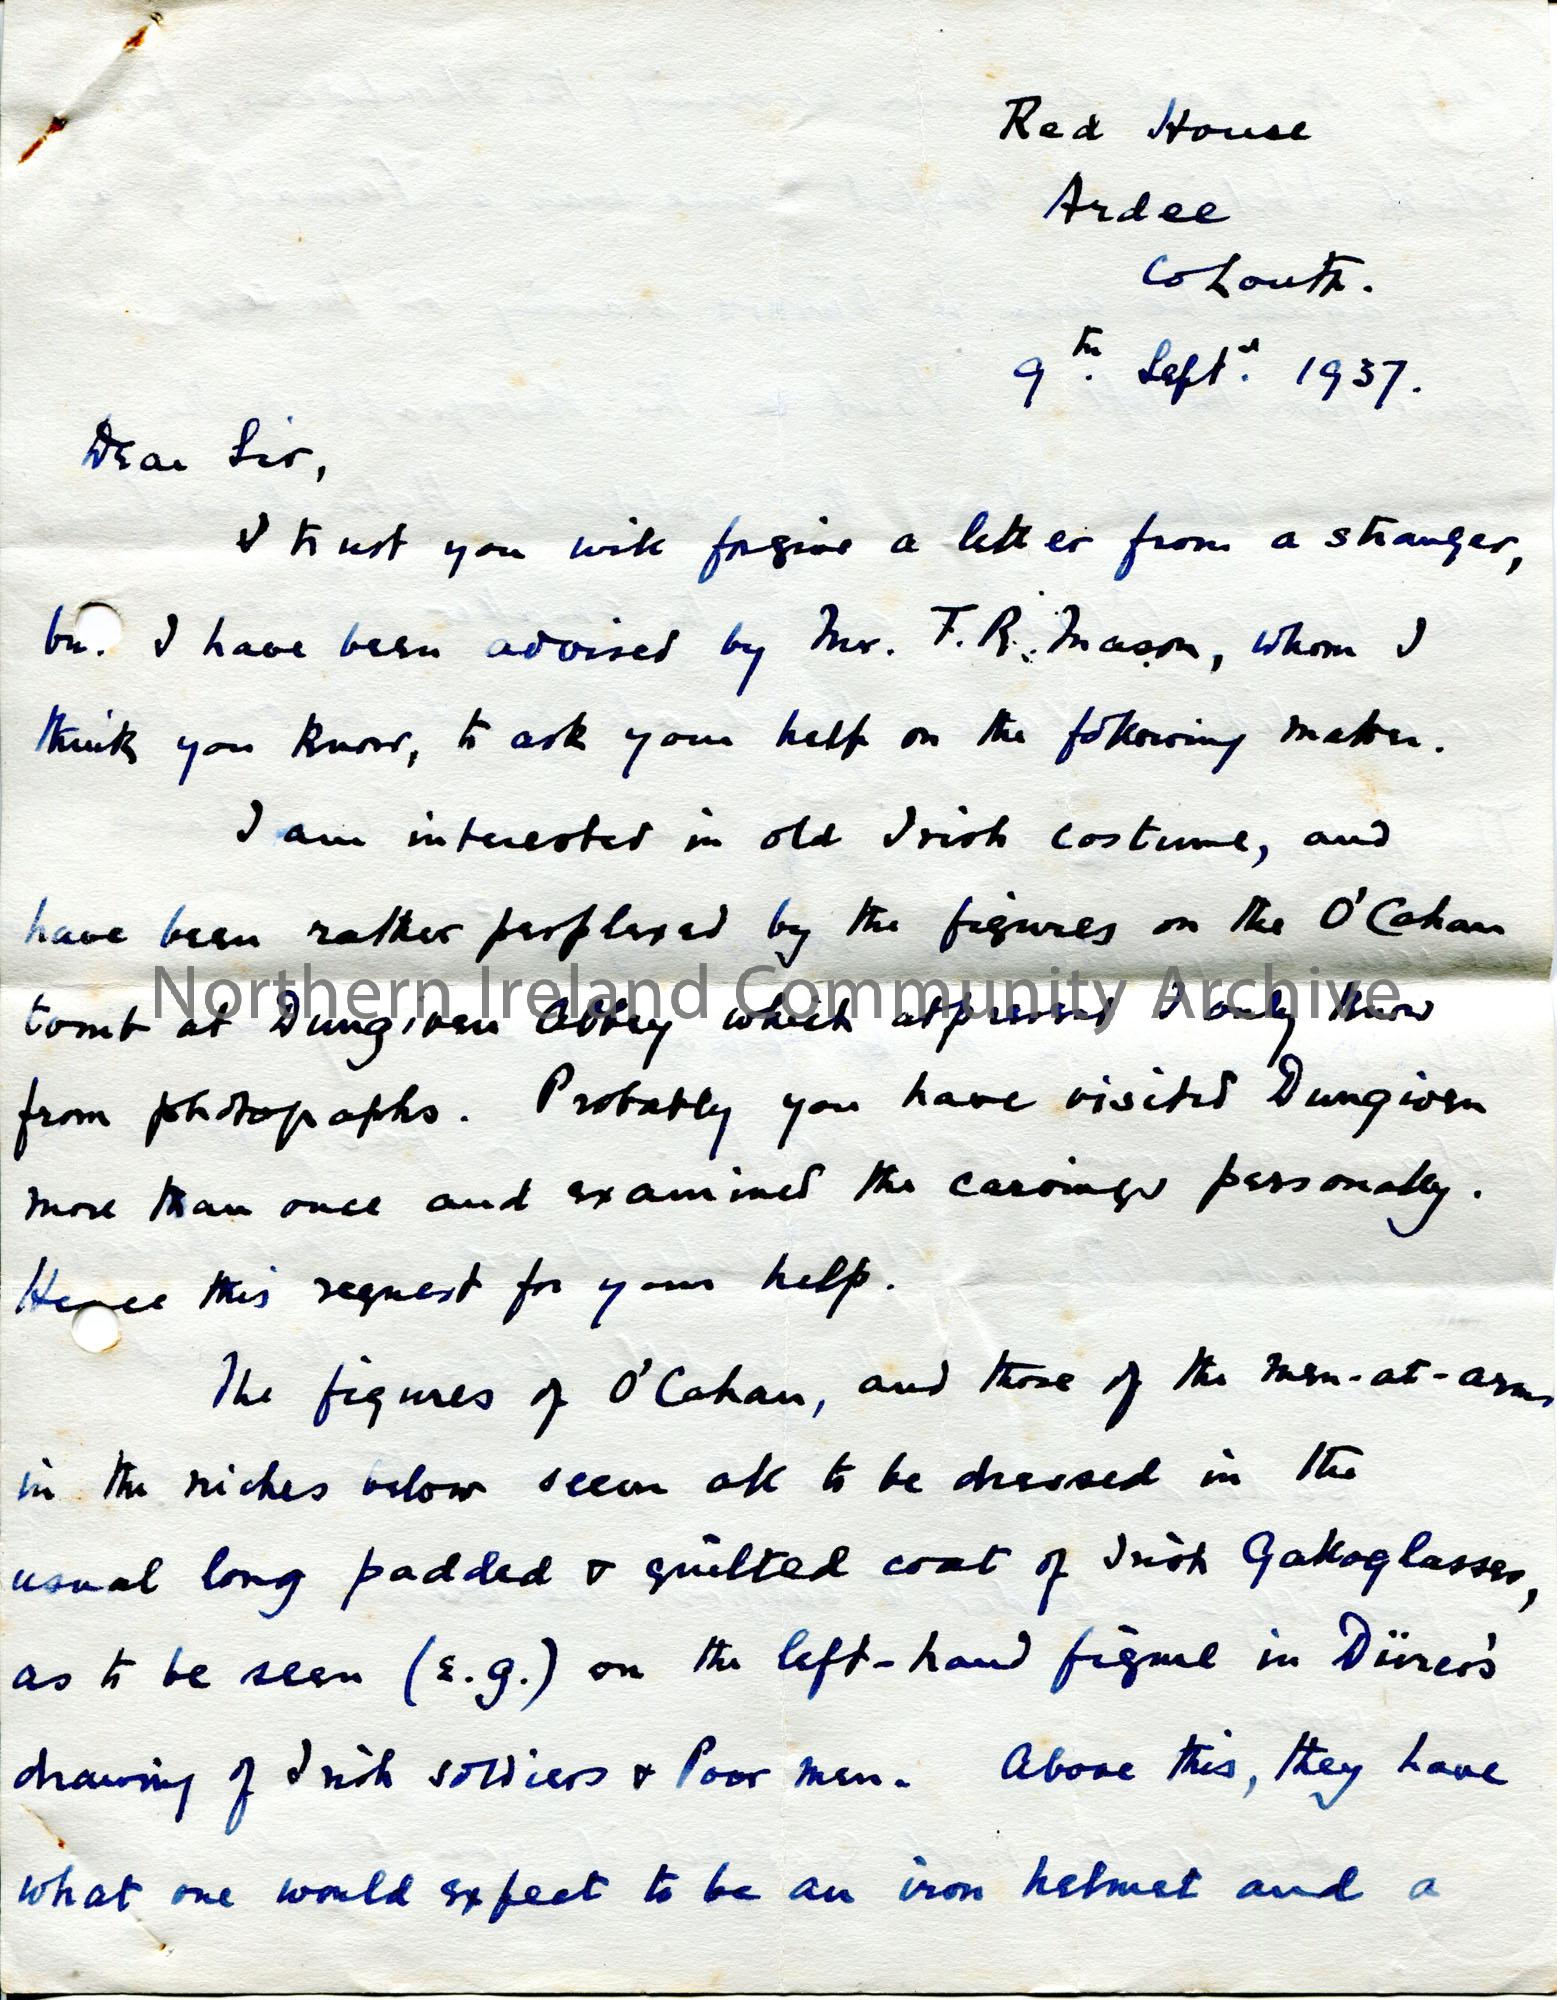 Red House
Ardee
Co Louth.
9th. Sept. 1937.
Dear Sir,
I trust you will forgive a letter from a stranger,
bu. I have been advised by Mr. T. R. Mason, whom I
think you know, to ask your help on the following matter.
I am interested in old Irish costume, and
have been rather perplexed by the figures on the O'Cahan
tomb at Dungiven Abbey which at present I only know
Northern Ireland Community Archive
from photographs. Probably you have visited Dungiven
more than once and examined the carvings personally.
Hence this request for your help.
The figures of O'Cahan, and those of the men-at-arms
in the niches below seem all to be dressed in the
usual long padded & quilted coat of Irish Galloglasses,
as to be seen (e.g.) on the left-hand figure in Dürer's
drawing of Irish soldiers & Poor men. Above this, they have
what one would expect to be an iron helmet and a